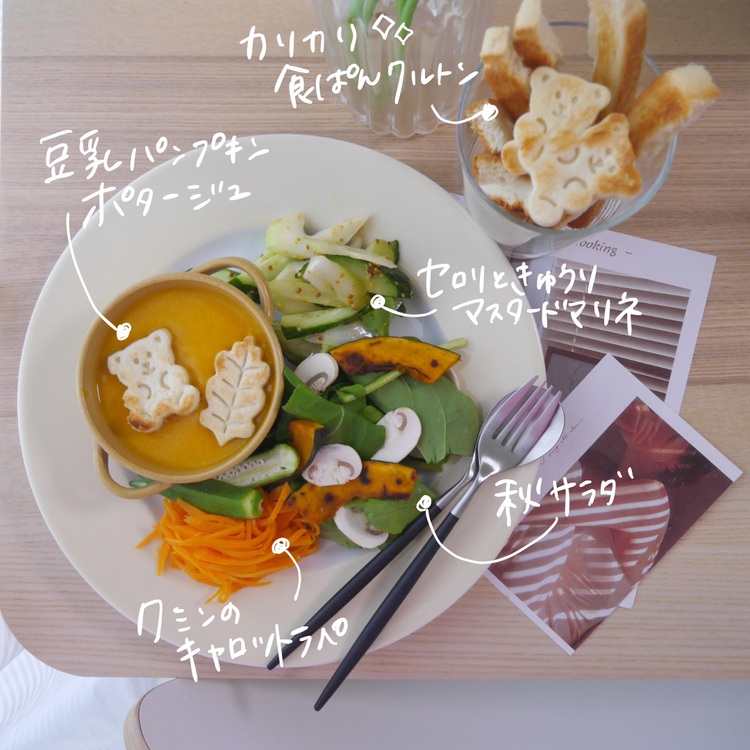 カリカリ
食ぱんクルトン
豆乳パンプキン
ポタージュ
ooking –
セロリときゅうり
マスタードマリネ
秋サラダ
クミンの
キャロットラペ